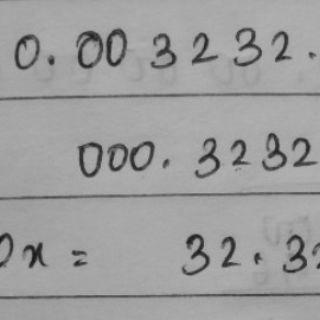 0.003232.
000.3232
0x = 32.32